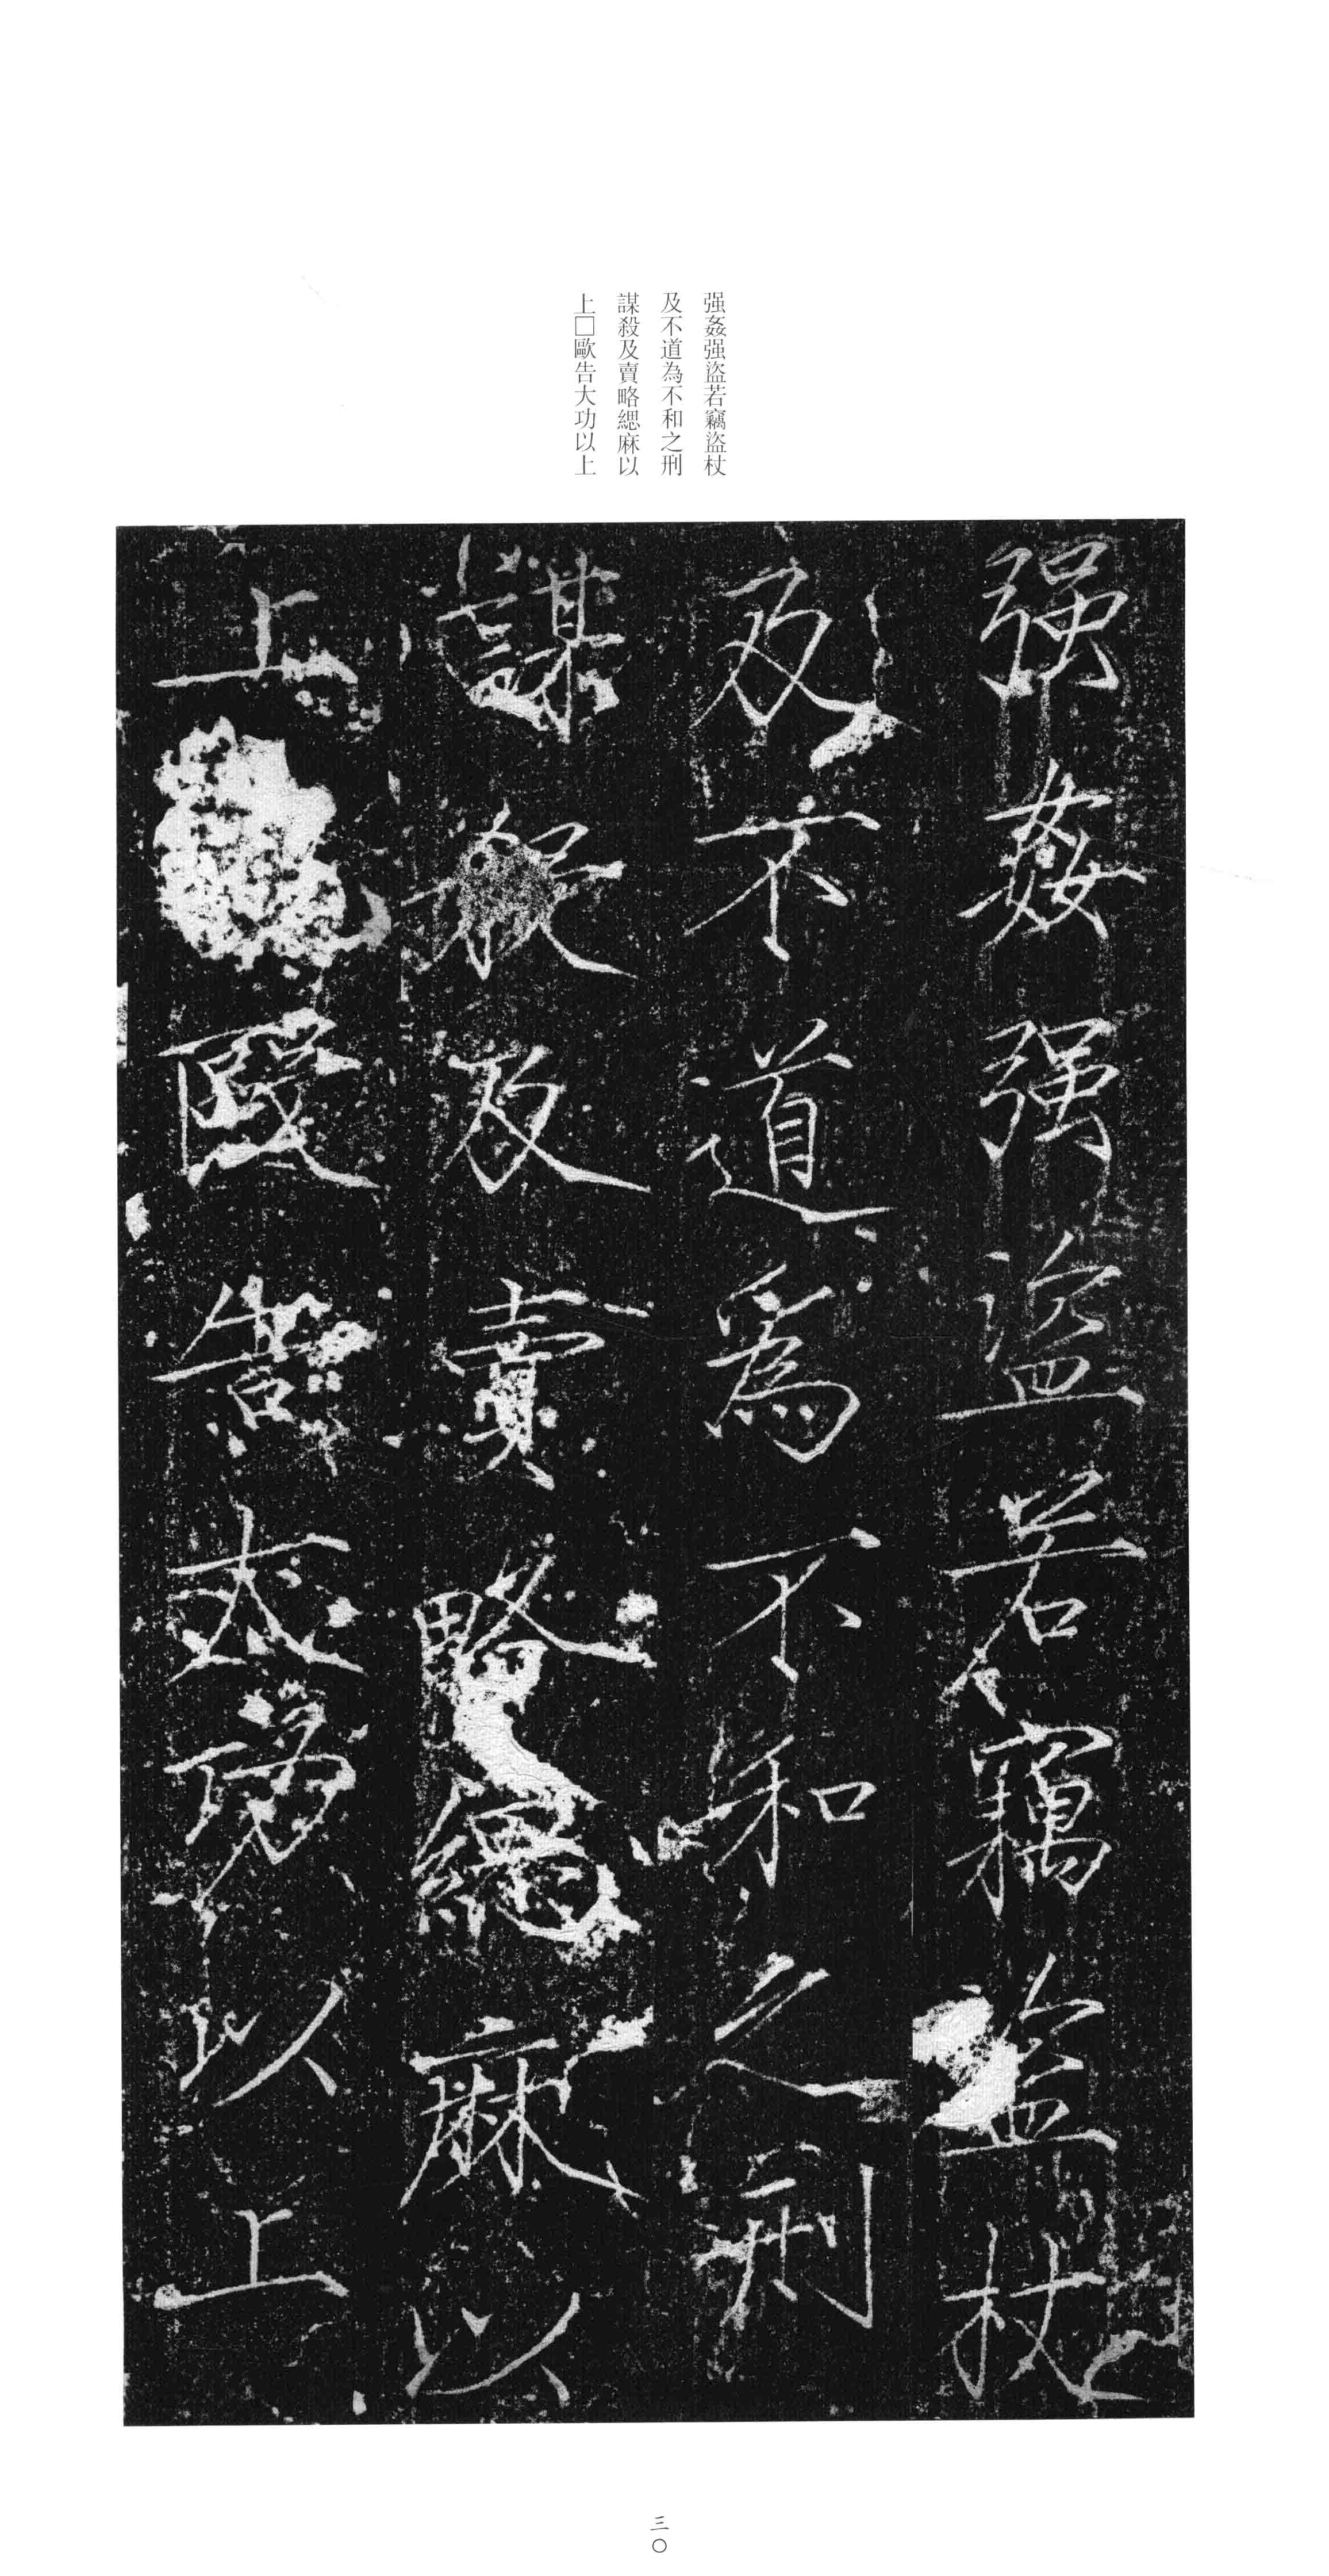 强姦强盜若竊盜杖
及不道為不和之刑
謀殺及賣略緦麻以
上□毆告大功以上
强姦强盜若竊盜杖
及不道為不和之刑
謀殺及賣略緦麻以
上毆告大功以上
三〇